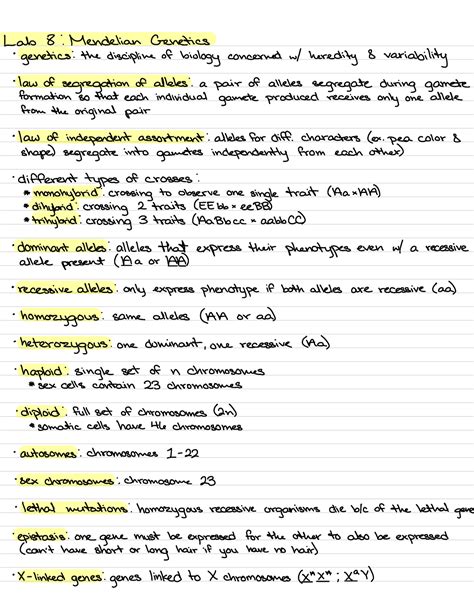 Lab 8: Mendelian Genetics
· genetics: the discipline of biology concerned w/ heredity & variability
· law of segregation of alleles: a pair of alleles segregate during gamete
formation so that each individual gamete produced receives only one allele
from the original pair
· law of independent assortment: alleles for diff. characters (ex. pea color &
shape) segregate into gametes independently from each other)
· different types of crosses:
* monohybrid: crossing to observe one single trait (Aa×AA)
* dihybrid: crossing 2 traits (EEbb×eeBB)
* trihybrid: crossing 3 traits (AaBbcc × aabbCC)
· dominant alleles: alleles that express their phenotypes even w/ a recessive
allele present (Aa or AA)
· recessive alleles: only express phenotype if both alleles are recessive (aa)
· homozygous: same alleles (AA or aa)
· heterozygous: one dominant, one recessive (Aa)
· haploid: single set of n chromosomes
* sex cells contain 23 chromosomes
· diploid: full set of chromosomes (2n)
* somatic cells have 46 chromosomes
· autosomes: chromosomes 1-22
· sex chromosomes: chromosome 23
· lethal mutations: homozygous recessive organisms die b/c of the lethal gene
· epistasis: one gene must be expressed for the other to also be expressed
(can't have short or long hair if you have no hair)
· X-linked genes: genes linked to X chromosomes